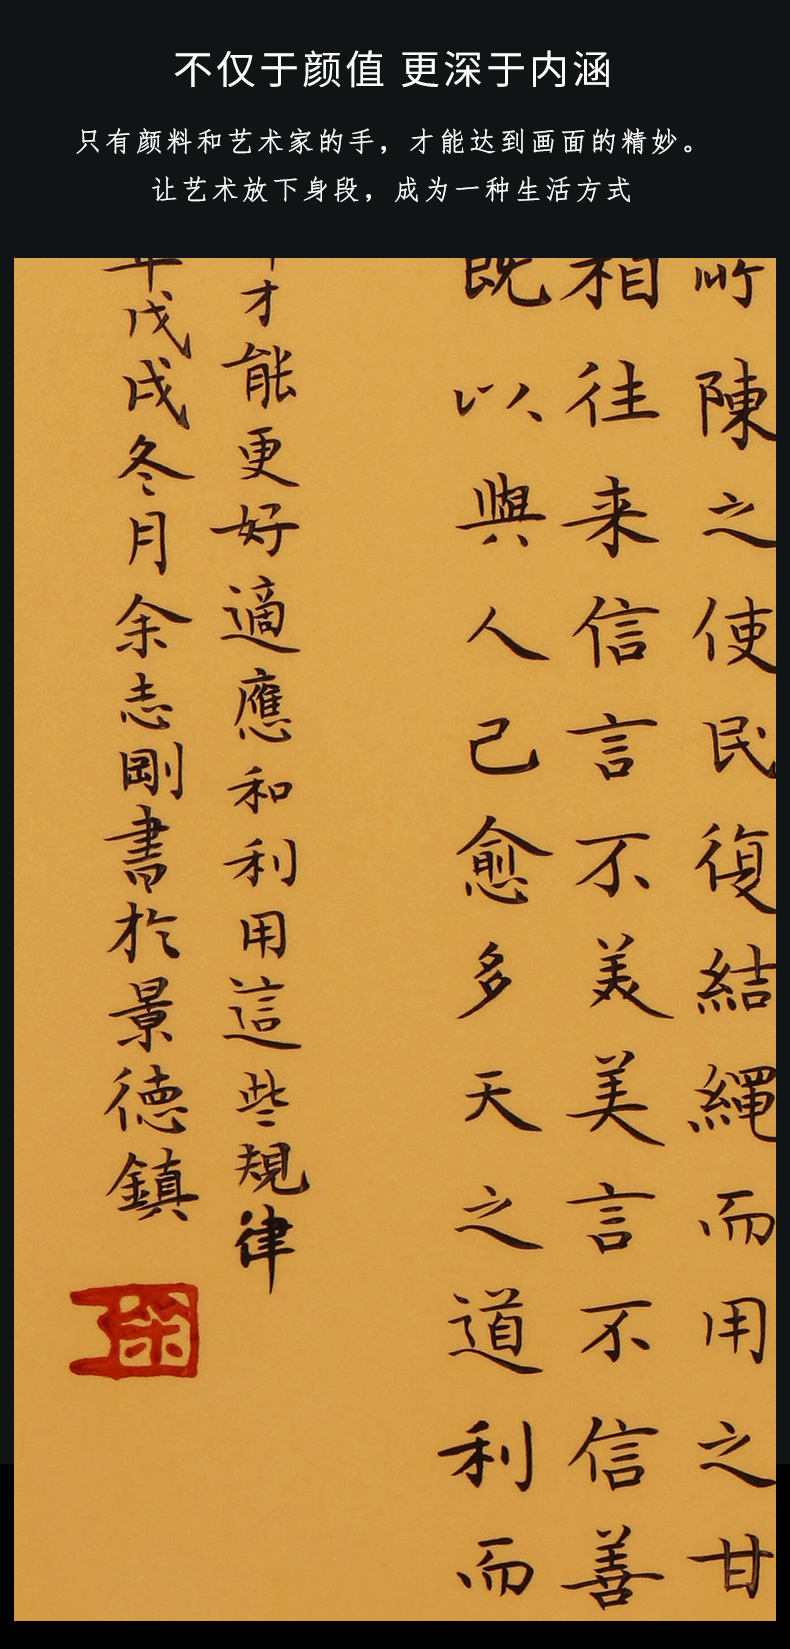 不仅于颜值 更深于内涵
只有颜料和艺术家的手，才能达到画面的精妙。
让艺术放下身段，成为一种生活方式
所陳之使民復結繩而用之甘
相往来信言不美美言不信善
既以與人己愈多天之道利而
才能更好適應和利用這些規律
年戊戌冬月余志剛書於景德鎮
余